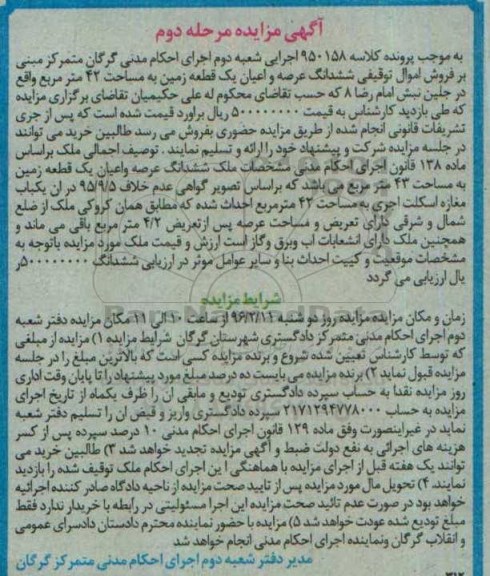 آگهی مزایده مرحله دوم
به موجب پرونده کلاسه ۹۵۰۱۵۸ اجرایی شعبه دوم اجرای احکام مدنی گرگان متمرکز مبنی
بر فروش اموال توقیفی ششدانگ عرصه و اعیان یک قطعه زمین به مساحت ۴۲ متر مربع واقع
در جلین نبش امام رضا ۸ که حسب تقاضای محکوم له علی حکیمیان تقاضای برگزاری مزایده
که طی بازدید کارشناس به قیمت ریال براورد قیمت شده است که پس از جری
تشریفات قانونی انجام شده از طریق مزایده حضوری بفروش می رسد طالبین خرید می توانند
در جلسه مزایده شرکت و پیشنهاد خود را ارائه و تسلیم نمایند . توصیف اجمالی ملک براساس
ماده ۱۳۸ قانون اجرای احکام مدنی مشخصات ملک ششدانگ عرصه واعیان یک قطعه زمین
به مساحت ۴۳ متر مربع می باشد که براساس تصویر گواهی عدم خلاف ۹۵/۹/۵ در ان یکباب
مغازه اسکلت اجری به مساحت ۴۲ مترمربع احداث شده که مطابق همان کروکی ملک از ضلع
شمال و شرقی دارای تعریض و مساحت عرصه پس ازتعریض ۴/۲ متر مربع باقی می ماند و
همچنین ملک دارای انشعابات اب وبرق و گاز است ارزش و قیمت ملک مورد مزایده باتوجه به
مشخصات موقعیت و کیبت احداث بنا و سایر عوامل موثر در ارزیابی ششدانگ ر
یال ارزیابی می گردد
شرایط مزایده
زمان و مکان مزایده مزایده روز دو شنبه ۹۶/۲/۱۱ از ساعت ۱۰ الی ۱۱ مکان مزایده دفتر شعبه
دوم اجرای احکام مدنی متمرکز دادگستری شهرستان گرگان شرایط مزایده ۱) مزایده از مبلغی
که توسط کارشناس تعیین شده شروع و برنده مزایده کسی است که بالاترین مبلغ را در جلسه
مزایده قبول نماید ۲) برنده مزایده می بایست ده درصد مبلغ مورد پیشنهاد را تا پایان وقت اداری
روز مزایده نقدا به حساب سپرده دادگستری تودیع و مابقی ان را ظرف یکماه از تاریخ اجرای
مزایده به حساب ۲۱۷۱۲۹۴۷۷۸۰۰۰ سپرده دادگستری واریز و قبض ان را تسلیم دفتر شعبه
نماید در غیراینصورت وفق ماده ۱۲۹ قانون اجرای احکام مدنی ۱۰ درصد سپرده پس از کسر
هزینه های اجرائی به نفع دولت ضبط و آگهی مزایده تجدید خواهد شد ۳) طالبین خرید می
توانند یک هفته قبل از اجرای مزایده با هماهنگی این اجرای احکام ملک توقیف شده را بازدید
نمایند. ۴) تحویل مال مورد مزایده پس از تایید صحت مزایده از ناحیه دادگاه صادر کننده اجرائیه
خواهد بود در صورت عدم تائید صحت مزایده این اجرا مسئولیتی در رابطه با خریدار ندارد فقط
مبلغ تودیع شده عودت خواهد شد ۵) مزایده با حضور نماینده محترم دادستان دادسرای عمومی
و انقلاب گرگان ونماینده اجرای احکام مدنی انجام خواهد شد
مدیر دفتر شعبه دوم اجرای احکام مدنی متمرکز گرگان